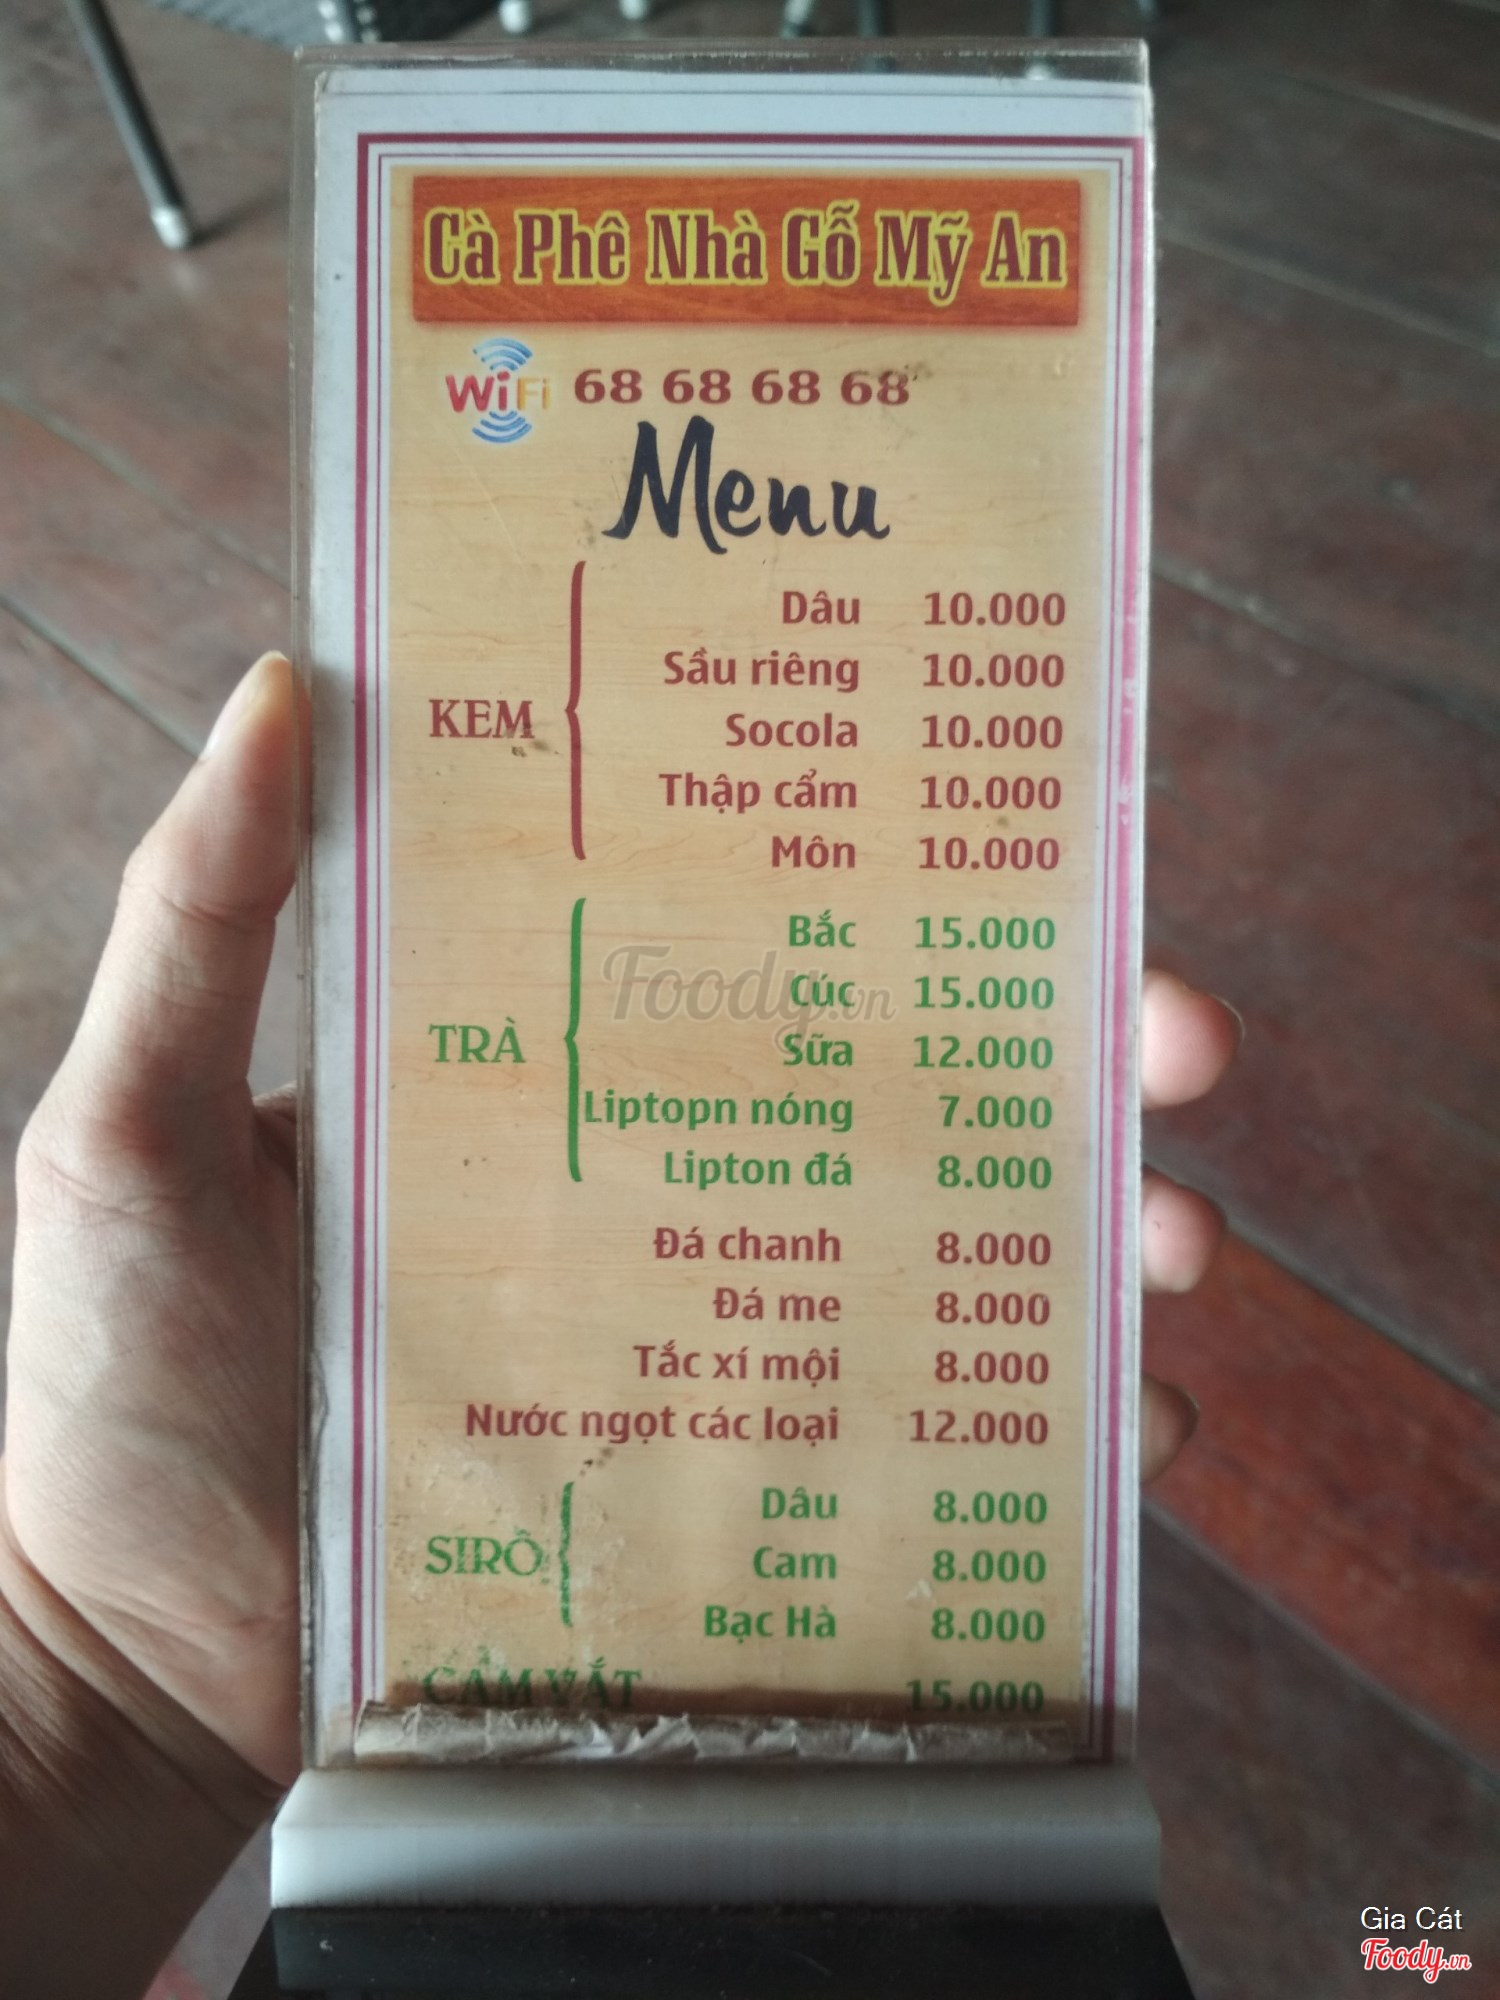 Cà Phê Nhà Gỗ Mỹ An
WiFi 68 68 68 68
Menu
KEM
Dâu 10.000
Sầu riêng 10.000
Socola 10.000
Thập cẩm 10.000
Môn 10.000
TRÀ
Bắc 15.000
Cúc 15.000
Sữa 12.000
Liptopn nóng 7.000
Lipton đá 8.000
Đá chanh 8.000
Đá me 8.000
Tắc xí mội 8.000
Nước ngọt các loại 12.000
SIRÔ
Dâu 8.000
Cam 8.000
Bạc Hà 8.000
CAM VẮT 15.000
Foody.vn
Gia Cát
Foody.vn